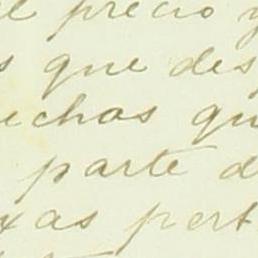 el precio y
s que des
echas qu
parte d
xas pert